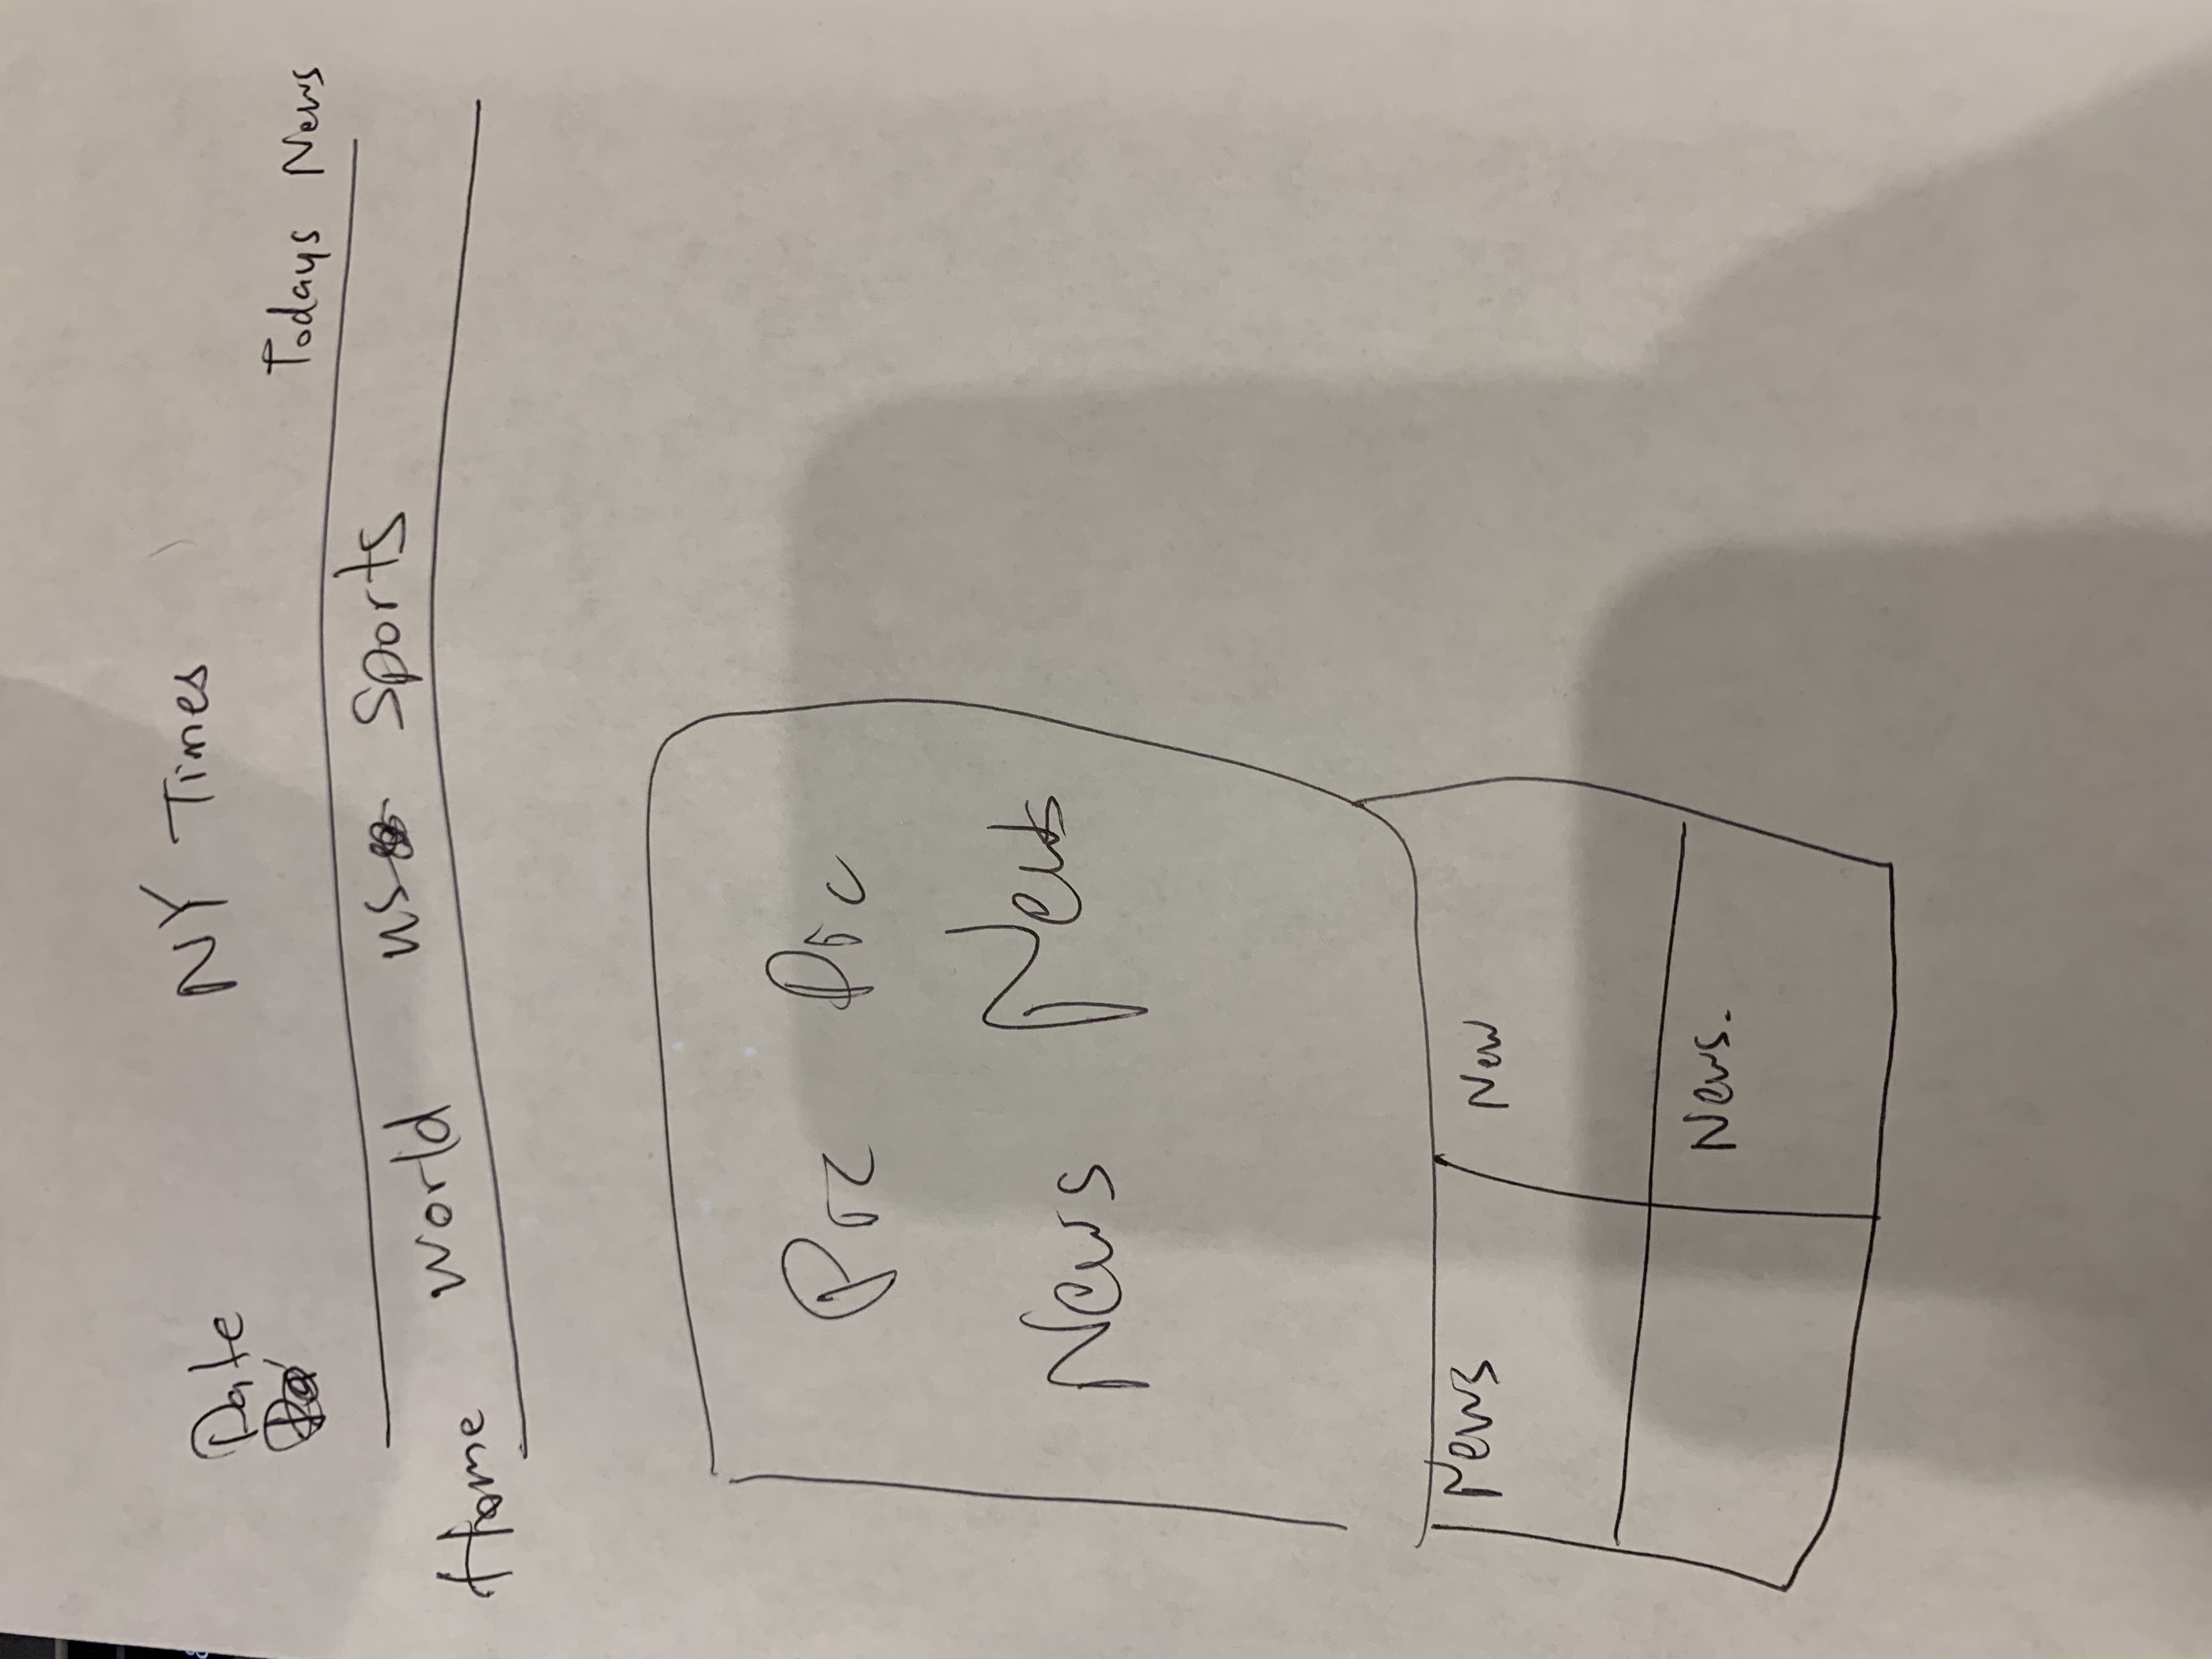 Date NY Times
Todays News
Home World US Sports
Pic Pic
News News
News New
News.